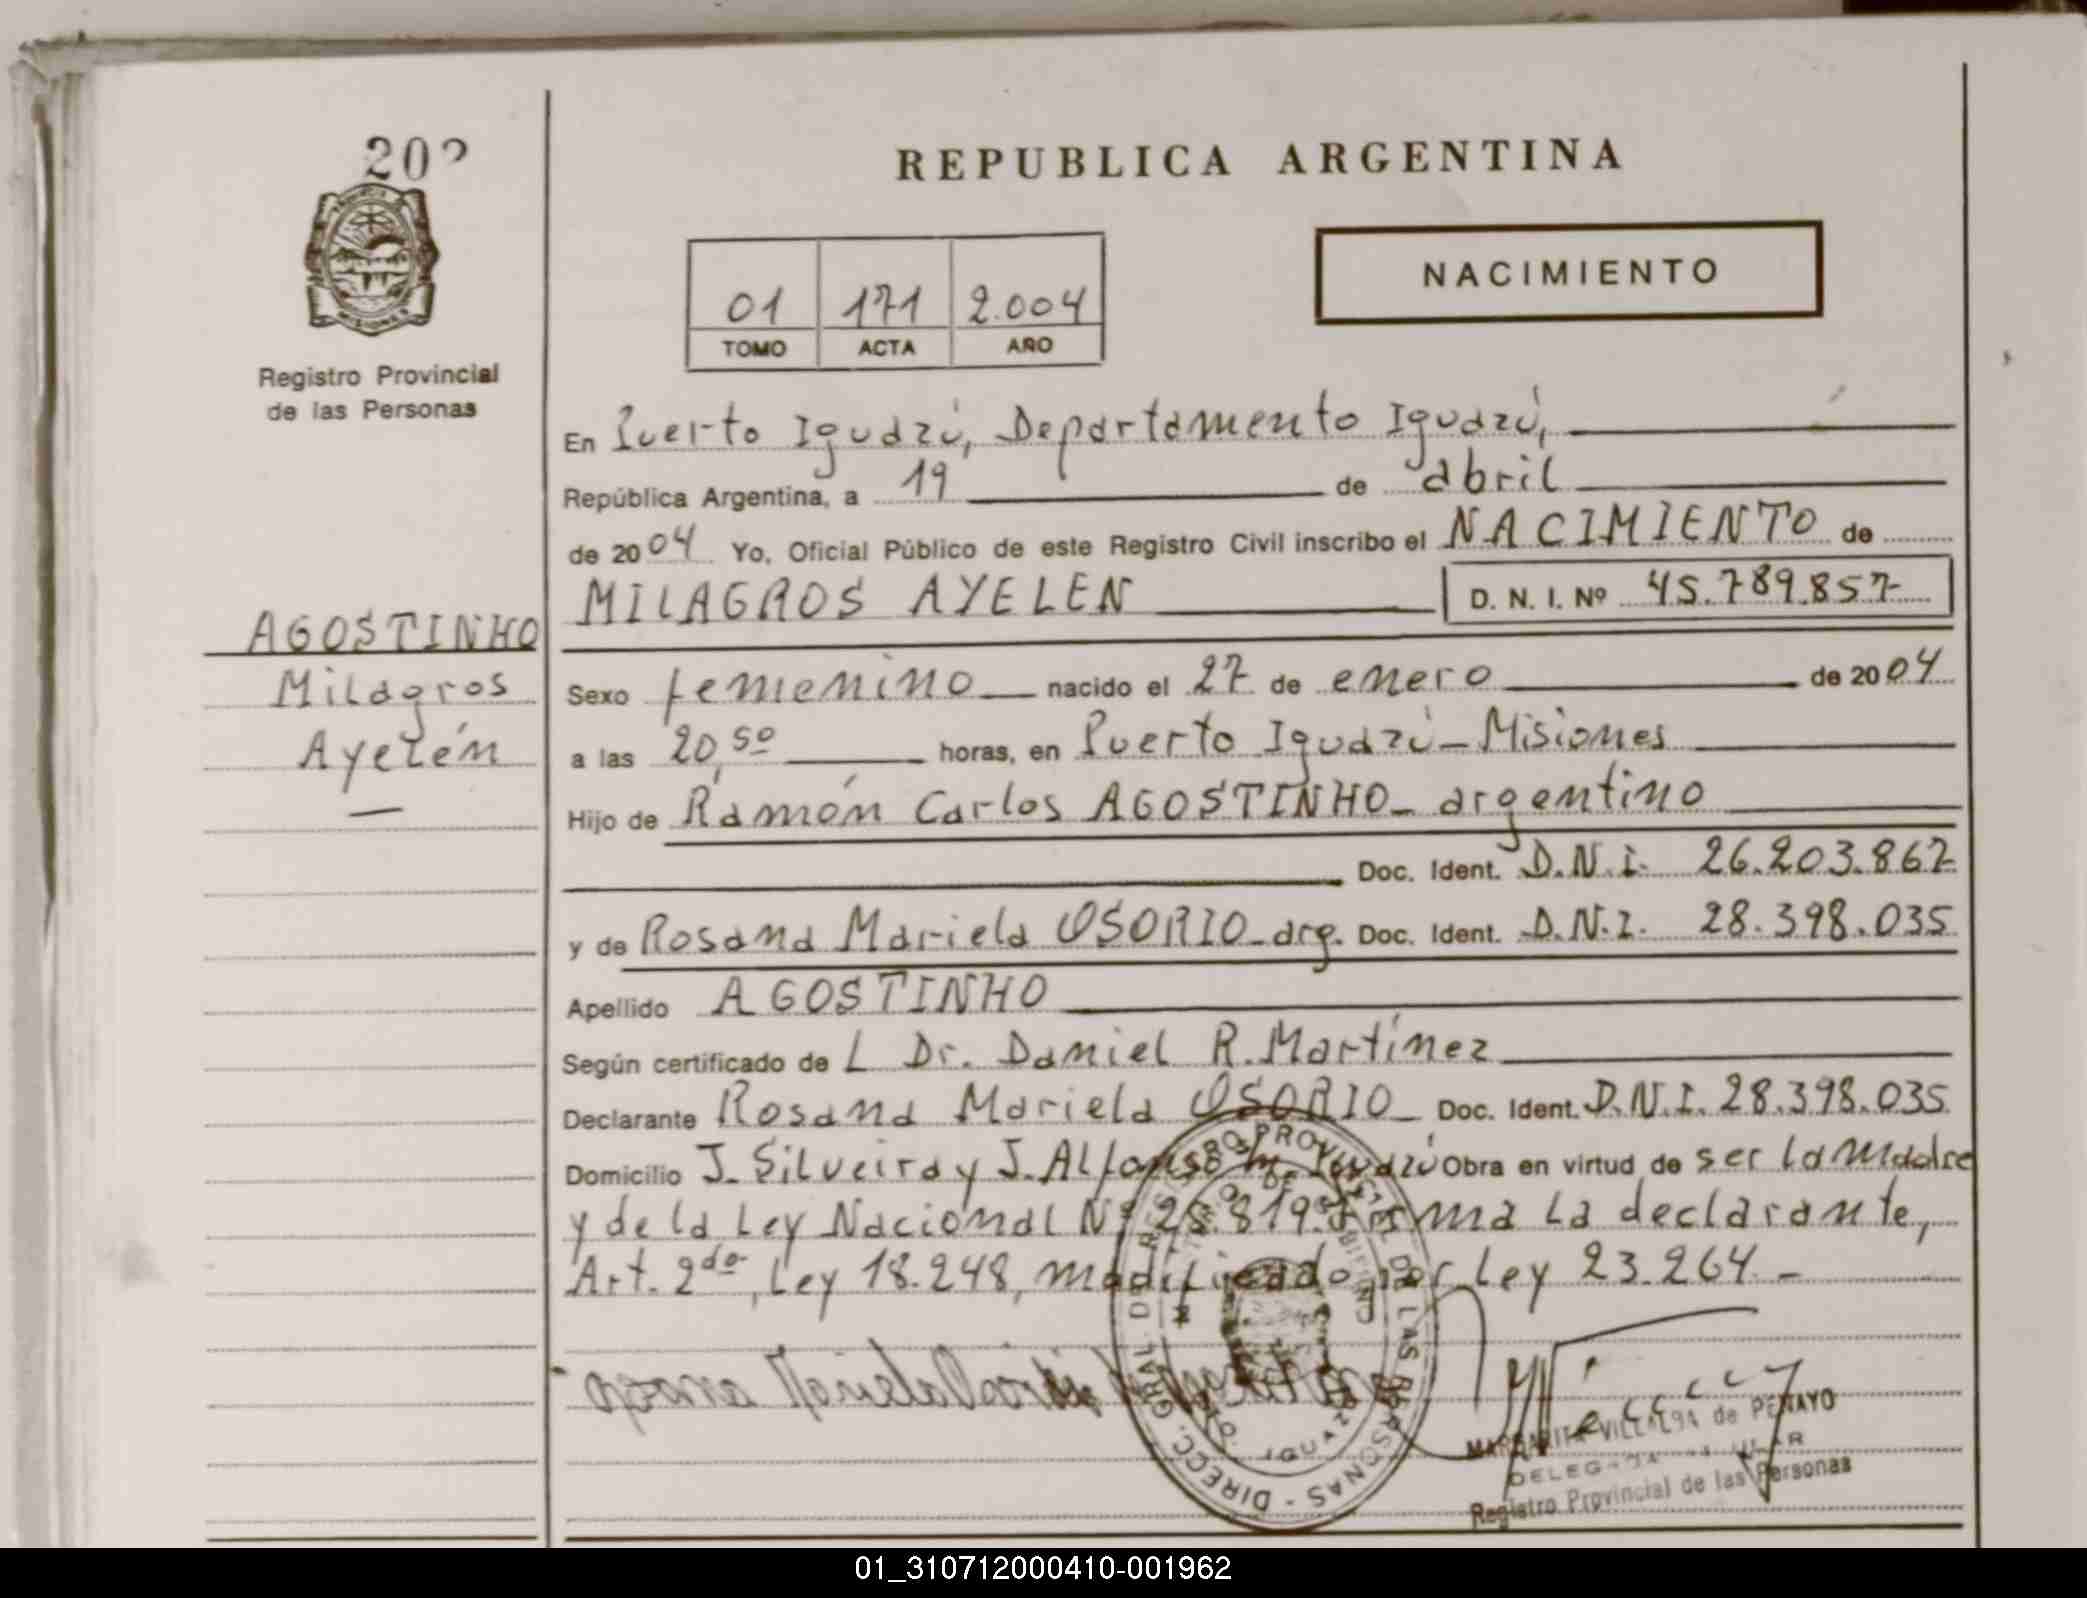 REPUBLICA ARGENTINA
NACIMIENTO
01 171 2.004
TOMO ACTA AÑO
Registro Provincial
de las Personas
En Puerto Iguazú, Departamento Iguazú,
República Argentina, a 19 de abril
de 2004 Yo, Oficial Público de este Registro Civil inscribo el NACIMIENTO de
MILAGROS AYELEN D. N. I. Nº 45.789.857
AGOSTINHO
Milagros
Ayelén
Sexo femenino nacido el 27 de enero de 2004
a las 20,50 horas, en Puerto Iguazú - Misiones
Hijo de Ramón Carlos AGOSTINHO - argentino
Doc. Ident. D.N.I. 26.203.867
y de Rosana Mariela OSORIO - arg. Doc. Ident. D.N.I. 28.398.035
Apellido AGOSTINHO
Según certificado de L Dr. Daniel R. Martínez
Declarante Rosana Mariela OSORIO - Doc. Ident. D.N.I. 28.398.035
Domicilio J. Silveira y J. Alfonso Iguazú Obra en virtud de ser la madre
y de la Ley Nacional Nº 25.819. Firma la declarante,
Art. 2do, Ley 18.248, modificado por Ley 23.264 -
MARGARITA VILLALBA de PENAYO
Registro Provincial de las Personas
01_310712000410-001962